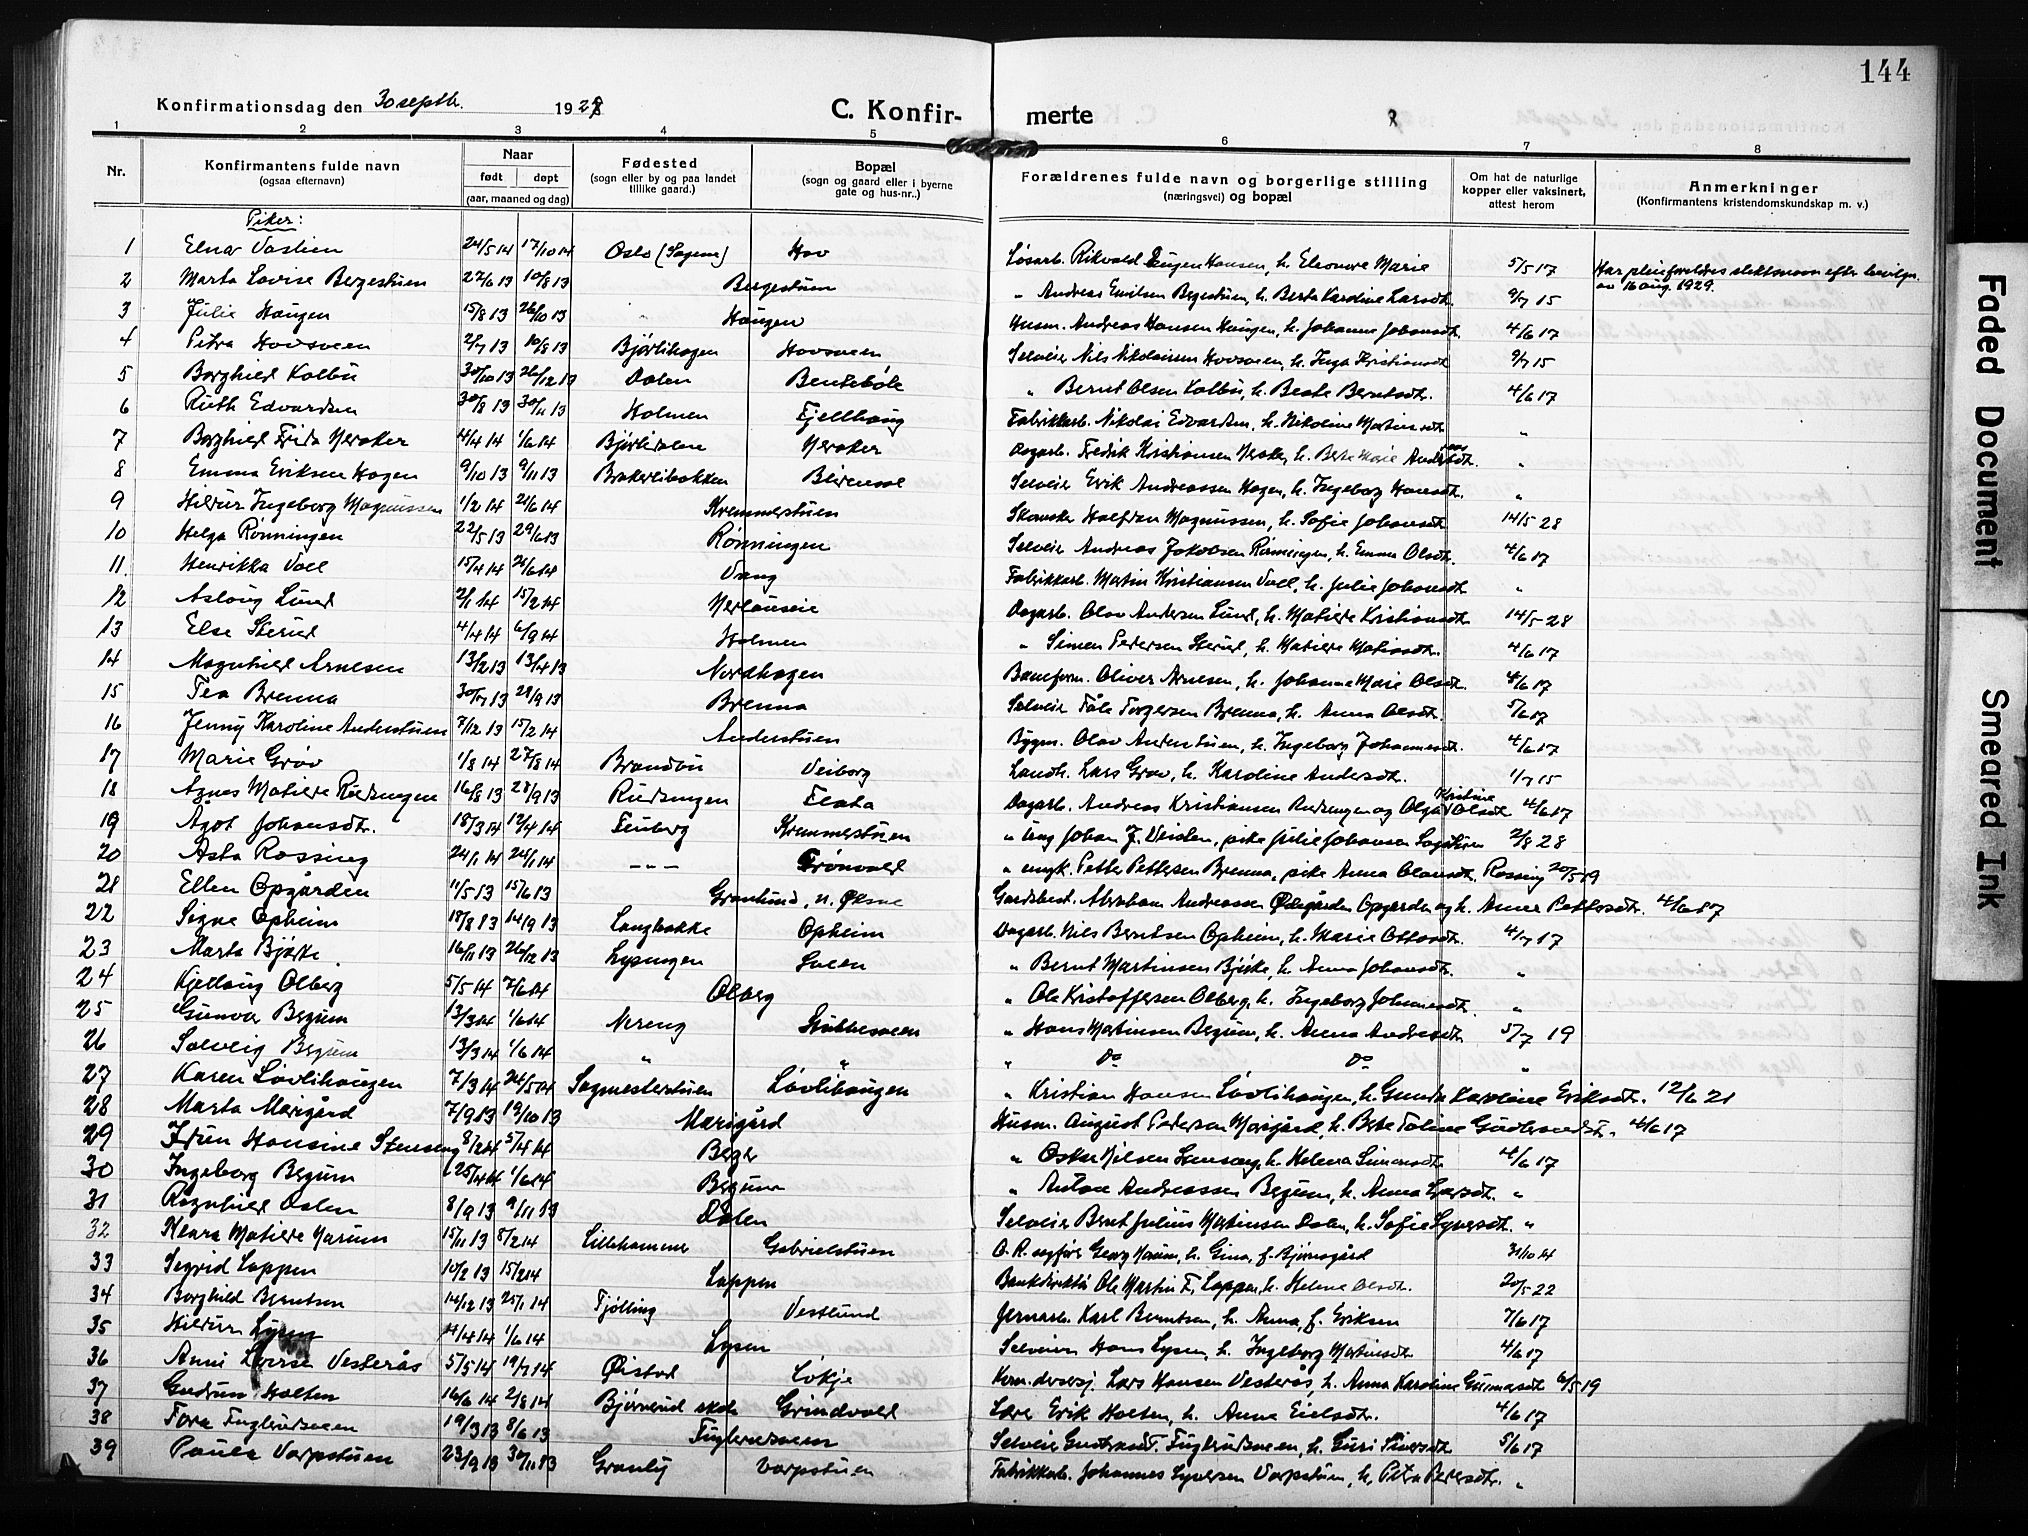 144
Konfirmationsdag den 30 septbr. 1928
C. Konfirmerte
1 2 3 4 5 6 7 8
Nr.
Konfirmantens fulde navn
(ogsaa efternavn)
Naar
født døpt
(aar, maaned og dag)
Fødested
(sogn eller by og paa landet
tillike gaard.)
Bopæl
(sogn og gaard eller i byerne
gate og hus-nr..)
Forældrenes fulde navn og borgerlige stilling
(næringsvei) og bopæl
Om hat de naturlige
kopper eller vaksinert,
attest herom
Anmerkninger
(Konfirmantens kristendomskundskap m. v.)
Piker:
1 Elna Vastien 24/5 14 17/10 14 Oslo (Sagene) Hov Løsarb. Rikvald Eugen Hansen, h. Eleonore Marie 5/5 17 Har pleieforeldres slektsnavn efter bevilgn. av 16 aug. 1929.
2 Marta Lovise Bergestuen 27/6 13 10/8 13 Bergestuen " Andreas Emilsen Bergestuen, h. Berte Karoline Larsdtr. 9/7 15
3 Julie Haugen 15/8 13 26/10 13 Haugen Husm. Andreas Hansen Haugen, h. Johanne Johansdtr. 4/6 17
4 Petra Hovsveen 2/7 13 10/8 13 Bjørlihagen Hovsveen Selveier Nils Nikolaisen Hovsveen, h. Inga Kristiansdtr. 9/7 15
5 Borghild Kolbu 30/10 13 26/12 13 Dalen Bentebøle " Bernt Olsen Kolbu, h. Beate Berntsdtr. 4/6 17
6 Ruth Edvardsen 30/8 13 30/11 13 Holmen Fjellhaug Fabrikkarb. Nikolai Edvardsen, h. Nikoline Martinsdtr. "
7 Borghild Frida Neraker 4/4 14 1/6 14 Bjørlidalen Neraker Dagarb. Fredrik Kristiansen Neraker, h. Berte Marie Andersdtr. "
8 Emma Eriksen Hagen 9/10 13 9/11 13 Brakerlibakken Selveier Erik Andreassen Hagen, h. Ingeborg Hansdtr. "
9 Hildur Ingeborg Magnussen 1/2 14 21/6 14 Kremmerstuen Skomaker Halfdan Magnussen, h. Sofie Johansdtr. 14/5 28
10 Helga Rønningen 22/5 13 29/6 13 Rønningen Selveier Andreas Jakobsen Rønningen, h. Emma Olsdtr. 4/6 17
11 Henrikka Voll 15/4 14 21/6 14 Vang Fabrikkarb. Martin Kristiansen Voll, h. Julie Johansdtr. "
12 Aslaug Lund 2/1 14 15/2 14 Dagarb. Olav Andersen Lund, h. Matilde Kristiansdtr. 14/5 28
13 Else Skrud 4/4 14 6/9 14 Holmen " Simen Pedersen Skrud, h. Matilde Matiasdtr. 4/6 17
14 Magnhild Arnesen 13/2 13 13/4 13 Nordhagen Baneform. Oliver Arnesen, h. Johanne Marie Olsdtr. 4/6 17
15 Tea Brenna 30/7 13 28/9 13 Brenna Selveier Tåle Torgersen Brenna, h. Anna Olsdtr. 5/6 17
16 Jenny Karoline Anderstuen 7/12 13 15/2 14 Anderstuen Bygm. Olav Anderstuen, h. Ingeborg Johannesdtr. 4/6 17
17 Marie Grøv 1/8 14 27/8 14 Brandbu Veiborg Landh. Lars Grøv, h. Karoline Andersdtr. 1/7 15
18 Agnes Matilde Rudsengen 16/8 13 28/9 13 Rudsengen Flata Dagarb. Andreas Kristiansen Rudsengen og Olga Kristine Olsdtr. 4/6 17
19 Ågot Johansdtr. 18/3 14 12/4 14 Fluberg Kremmerstuen " ung Johan J. Veisten, pike Julie Johansen 2/8 28
20 Asta Rossing 24/1 14 26/1 14 --- Grønvold " ungk. Petter Pettersen Brenna, pike Anna Olavsdtr. Rossing 20/5 19
21 Ellen Opgården 11/5 13 15/6 13 Granlund, n. Øksne Gardsbest. Abraham Andreassen Opgården og h. Anna Pettersdtr. 4/6 17
22 Signe Opheim 18/8 13 14/9 13 Langbakke Opheim Dagarb. Nils Berntsen Opheim, h. Marie Ottosdtr. 4/7 17
23 Marta Bjørke 16/11 13 26/12 13 Lysengen Sveen " Bernt Martinsen Bjørke, h. Anna Johansdtr. "
24 Kjellaug Olberg 5/5 14 7/6 14 Olberg " Ole Kristoffersen Olberg, h. Ingeborg Johannesdtr. "
25 Gunvor Begum 13/3 14 1/6 14 Nereng Stubbesveen " Hans Martinsen Begum, h. Anna Andresdtr. 5/7 19
26 Solveig Begum 13/3 14 1/6 14 " " " Do Do "
27 Karen Løvlihaugen 7/3 14 24/5 14 Sagmesterstuen Løvlihaugen " Kristian Hansen Løvlihaugen, h. Gunda Karoline Eriksdtr. 12/6 21
28 Marta Marigård 7/9 13 19/10 13 Marigård Husm. August Pedersen Marigård, h. Berte Toline Gulbrandsdtr. 4/6 17
29 Idun Hansine Stenseng 8/2 14 5/4 14 Berger " Oskar Nilsen Stenseng, h. Helena Simensdtr. 4/6 17
30 Ingeborg Begum 25/4 14 1/6 14 Begum " Anton Andreassen Begum, h. Anna Larsdtr. "
31 Ragnhild Dalen 8/9 13 9/11 13 Dalen Selveier Bernt Julius Martinsen Dalen, h. Sofie Syversdtr. "
32 Klara Matilde Narum 15/11 13 8/2 14 Lillehammer Gabrielstuen O. R. sagfører Georg Narum, h. Gina, f. Bjørnsgård 31/10 14
33 Sigrid Lappen 10/2 13 15/2 14 Lappen Bankdirektør Ole Martin T. Lappen, h. Helene Olsdtr. 20/5 22
34 Borghild Berntsen 14/12 13 25/1 14 Tjølling Vestlund Jernarb. Karl Berntsen, h. Anna, f. Eriksen 7/6 17
35 Hildur Lysen 4/4 14 1/6 14 Lysen Selveier Hans Lysen, h. Ingeborg Martinsdtr. 4/6 17
36 Anni Vesterås 5/5 14 19/7 14 Øistad Løkje Lars Hansen Vesterås, h. Anna Karoline Gunnarsdtr. 6/5 19
37 Gudrun Holten 16/6 14 2/8 14 Bjørnerud skole Grindvold Lærer Erik Holten, h. Anna Eielsdtr. 4/6 17
38 Tora Fuglerudsveen 19/3 13 8/6 13 Fuglerudsveen Selveier Gustav T. Fuglerudsveen, h. Guri Siversdtr. 5/6 17
39 Paula Varpstuen 23/9 13 30/11 13 Granlij Varpstuen Fabrikkarb. Johannes Syversen Varpstuen, h. Petra Pedersdtr. "
Faded Document
Smeared Ink